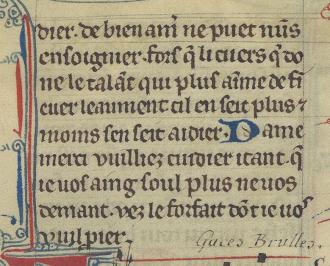 dier. de bien am̄ ne puet nūs
ensoignier. fors q̄ li cuers q̄ do
ne le talāt qui plus aīme de fi
cuer leaument cil en seit plus ⁊
moins sen seit aidier. Dame
merci vuilliez cuidier itant. q̄
ie uos aing soul plus ne uos
demant. vez le forfait dōt ie uoˢ
vuil pier
Gaces Brulles.